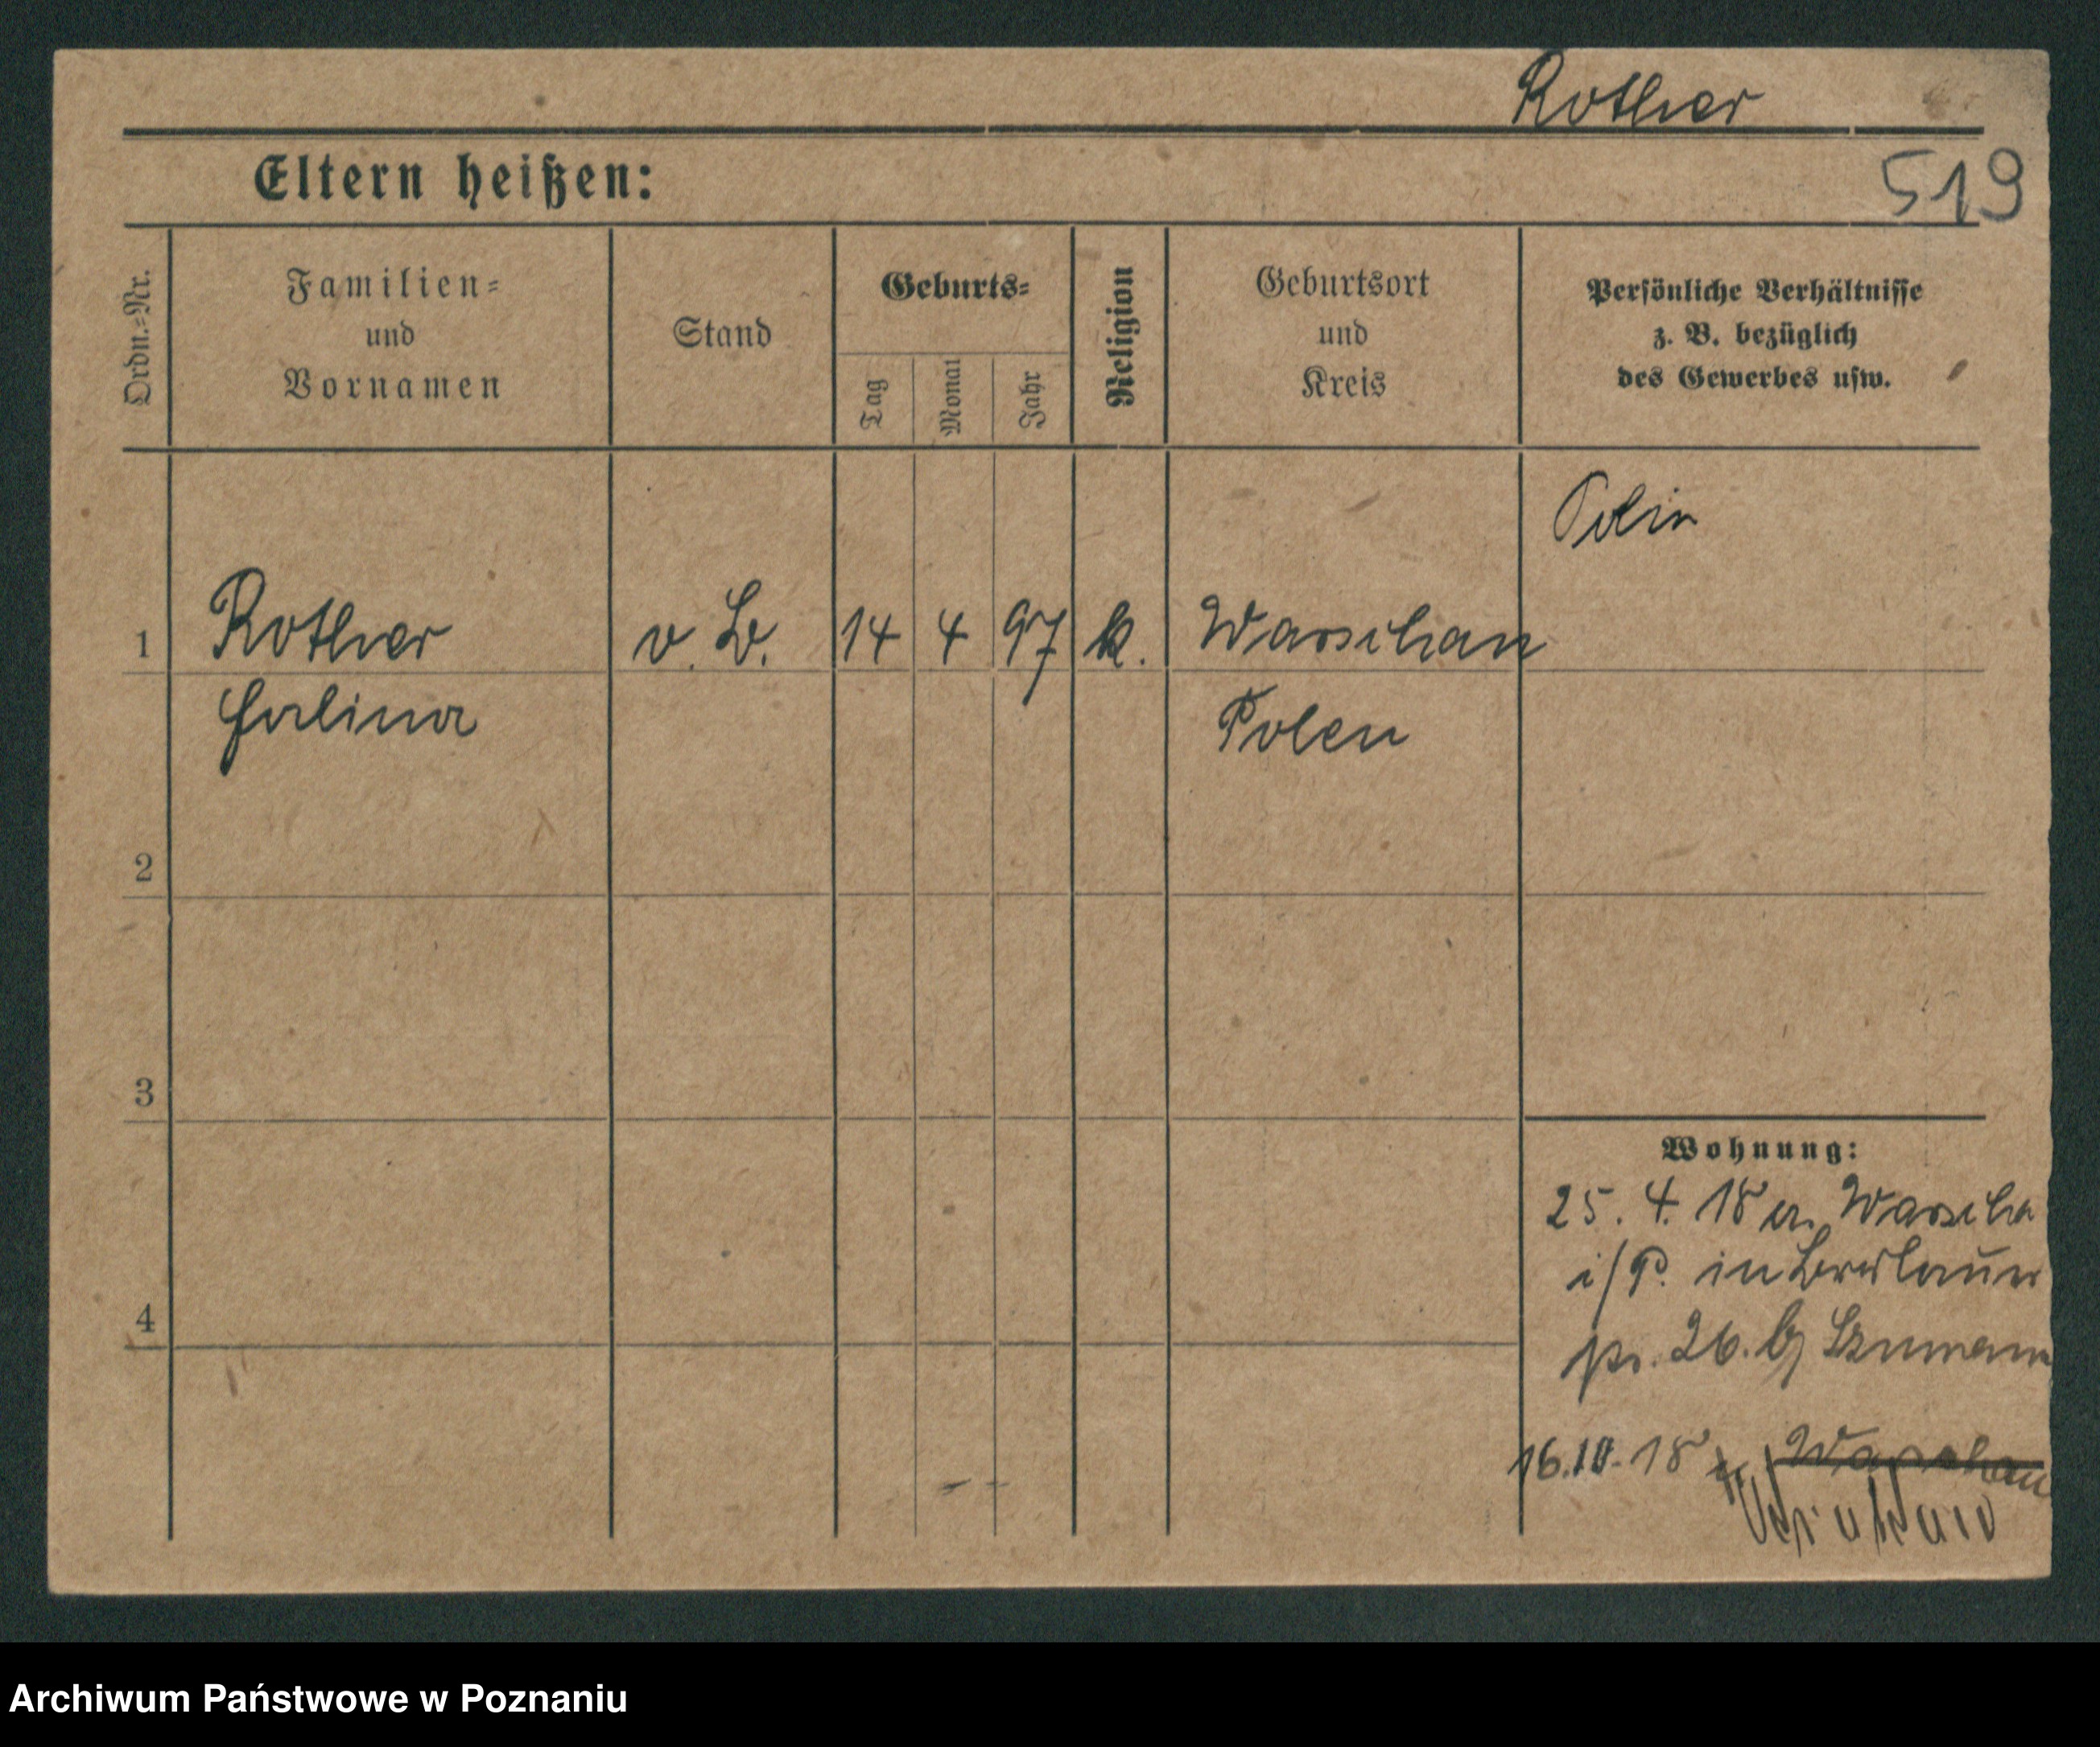 Rother
Eltern heißen:
519
Ordn.=Nr.
Familien=
und
Vornamen
Stand
Geburts=
Tag
Monat
Jahr
Religion
Geburtsort
und
Kreis
Persönliche Verhältnisse
z. B. bezüglich
des Gewerbes usw.
Polin
1 Rother v. B. 14 4 97 k. Warschau
Halina Polen
2
3
Wohnung:
25. 4. 18 Warscha
i/P. in
4
26. b/
16.10.18 Warschau
Archiwum Państwowe w Poznaniu